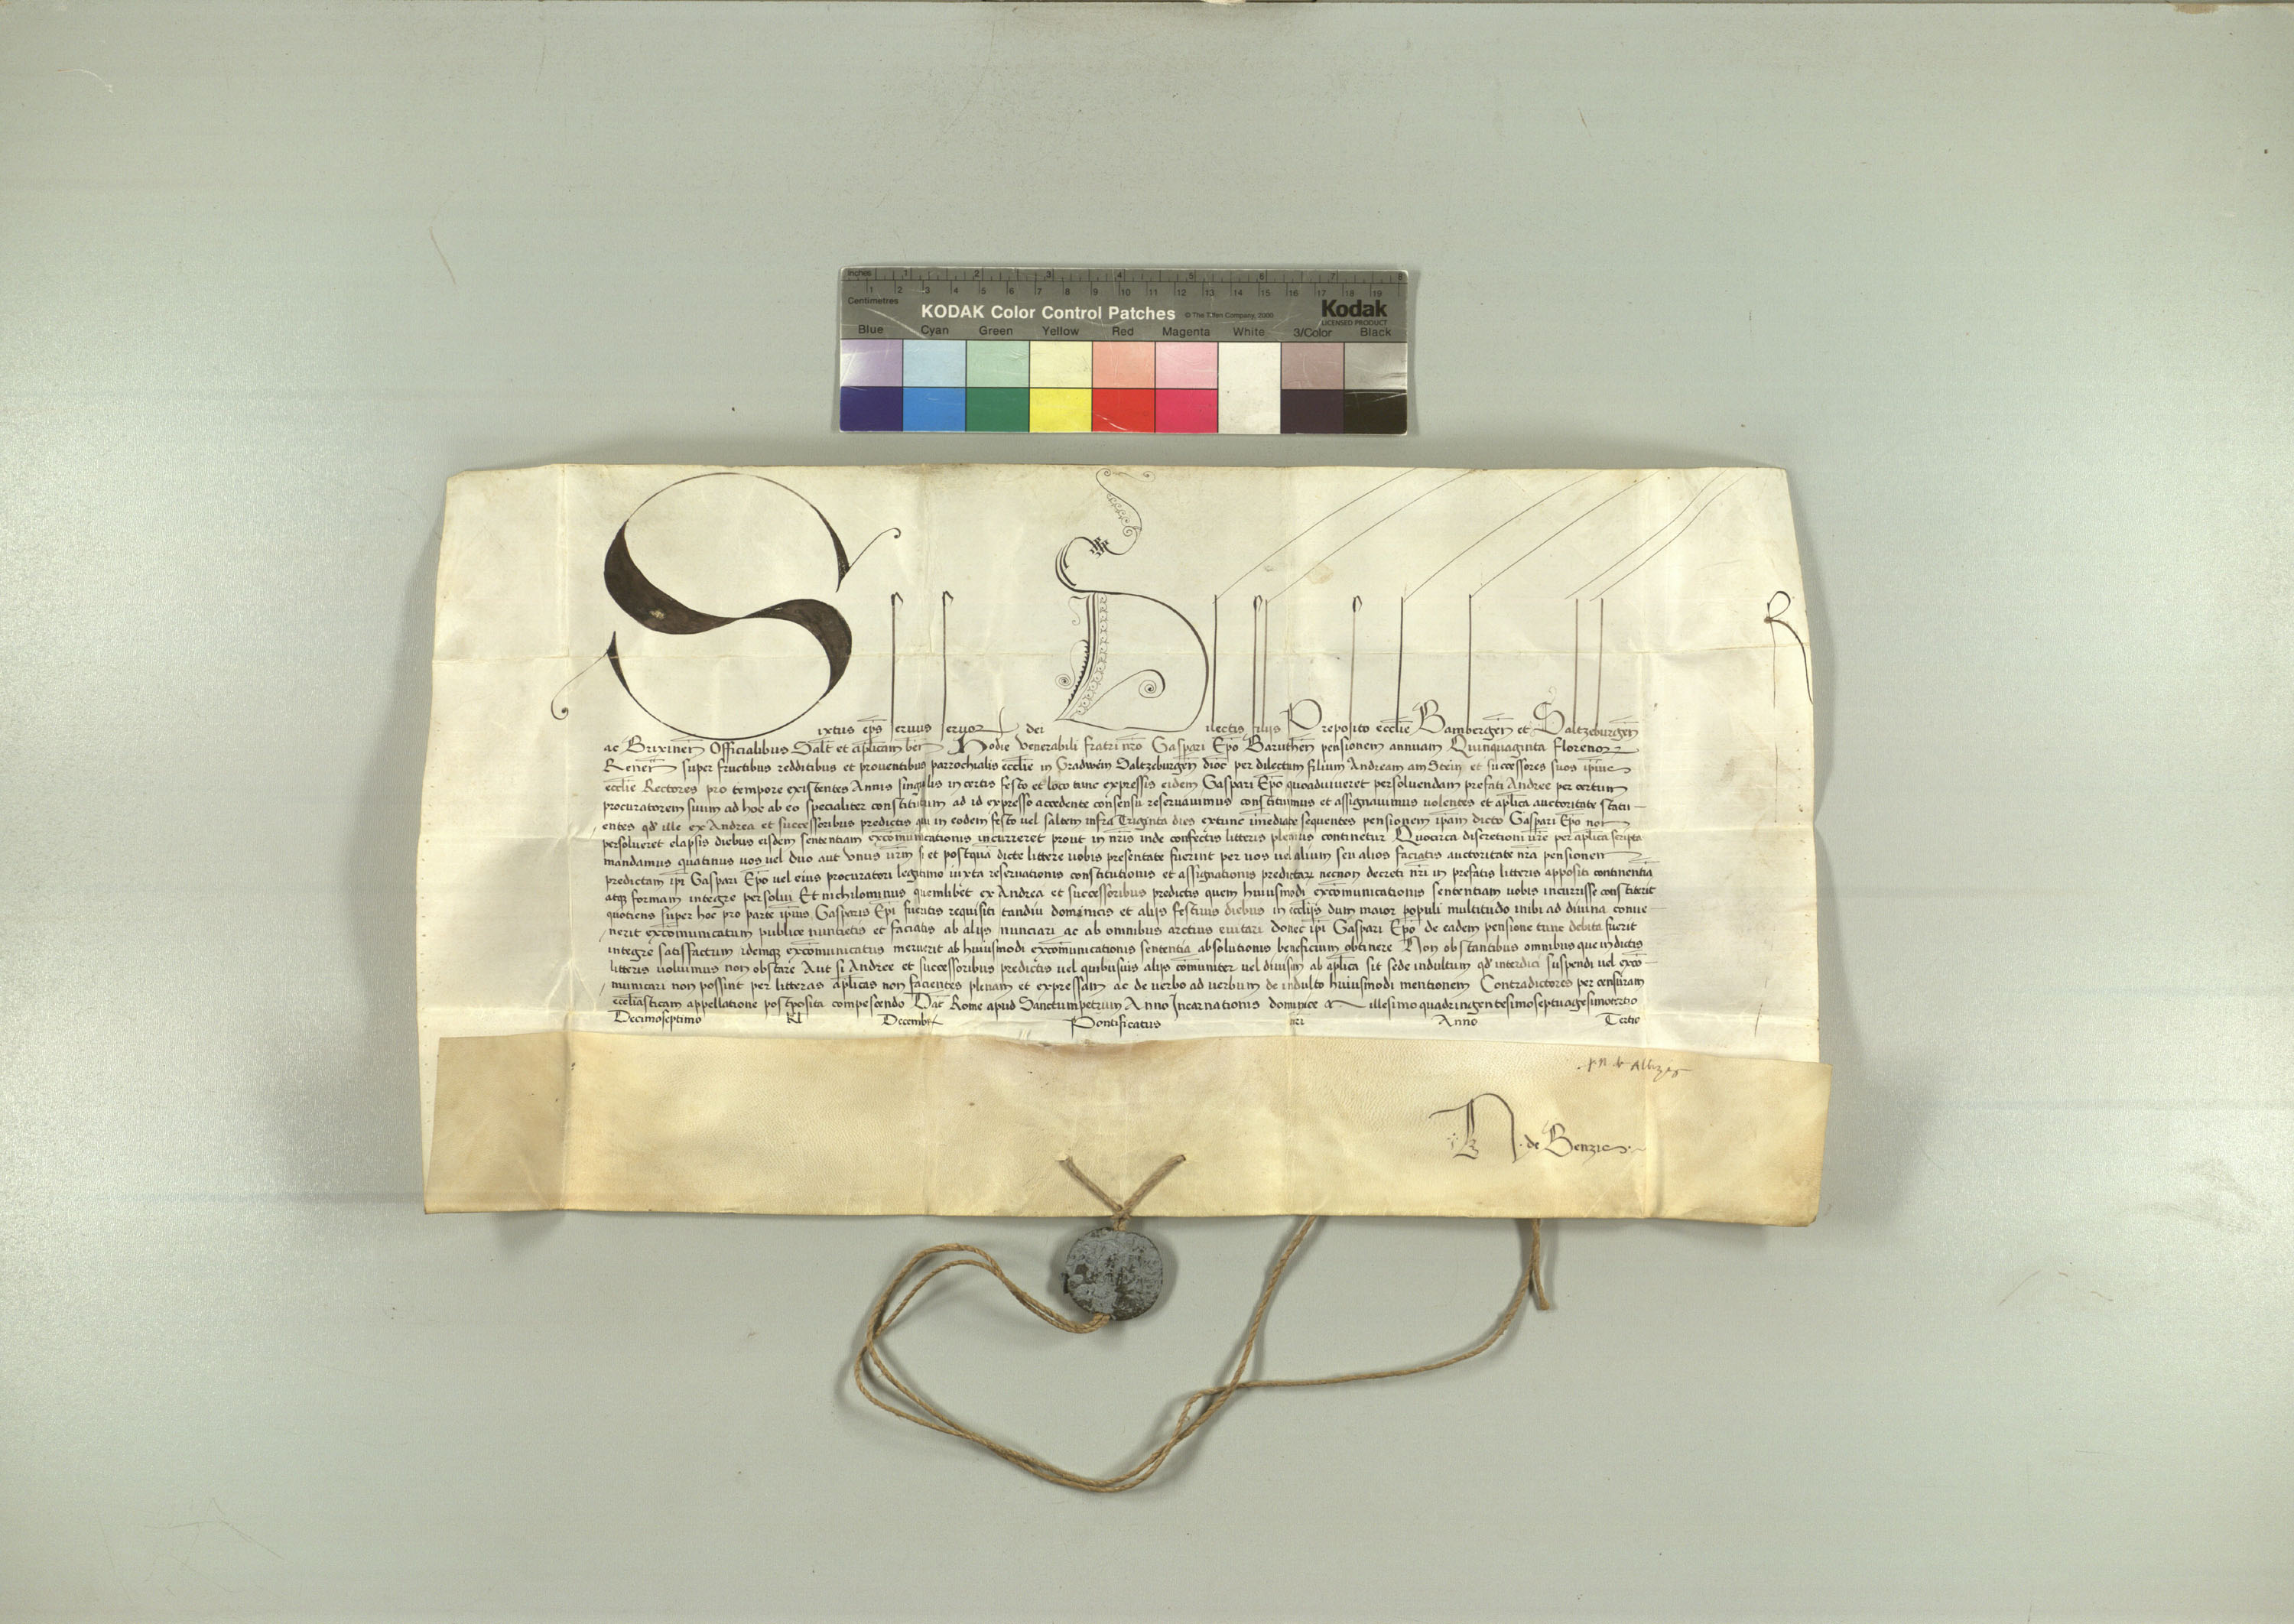 Inches 1 2 3 4 5 6 7 8
1 2 3 4 5 6 7 8 9 10 11 12 13 14 15 16 17 18 19
Centimetres
KODAK Color Control Patches © The Tiffen Company, 2000 Kodak
LICENSED PRODUCT
Blue Cyan Green Yellow Red Magenta White 3/Color Black
R
Sixtus ep̄s seruus seruoꝝ dei Dilectis filijs Preposito eccl̄ie Bambergen̄ et Saltzeburgen̄
ac Brixinen̄ Officialibus Salt̄ et ap̄licam ben̄ Hodie venerabili fratri nr̄o Gaspari Ep̄o Baruthen̄ pensionem annuam Quinquaginta Florenoꝝ
Renen̄ super fructibus redditibus et prouentibus parrochialis eccl̄ie in Gradwein Saltzeburgen̄ dioc̄ per dilectum filium Andream am Stein et successores suos ip̄ius
eccl̄ie Rectores pro tempore existentes Annis singulis in certis festo et loco tunc expressis eidem Gaspari Ep̄o quoaduiueret persoluendam prefati Andree per certum
procuratorem suum ad hoc ab eo specialiter constitutum ad id expresso accedente consensu reseruauimus constituimus et assignauimus uolentes et ap̄lica auctoritate statu-
entes qd̄ ille ex Andrea et successoribus predictis qui in eodem festo uel saltem infra Triginta dies extunc īmediate sequentes pensionem ip̄am dicto Gaspari Ep̄o non
persolueret elapsis diebus eisdem sententiam excōmunicationis incurreret prout in nr̄is inde confectis litteris plenius continetur Quocirca discretioni ur̄e per ap̄lica scripta
mandamus quatinus uos uel duo aut vnus ur̄m si et postquā dicte littere uobis presentate fuerint per uos uel alium seu alios faciatis auctoritate nr̄a pensionem
predictam ip̄i Gaspari Ep̄o uel eius procuratori legitimo iuxta reseruationis constitutionis et assignationis predictaꝝ necnon decreti nr̄i in prefatis litteris appositi continentiā
atqꝫ formam integre persolui Et nichilominus quemlibet ex Andrea et successoribus predictis quem huiusmodi excōmunicationis sententiam uobis incurrisse constiterit
quotiens super hoc pro parte ip̄ius Gasparis Ep̄i fueritis requisiti tandiu dominicis et alijs festiuis diebus in eccl̄ijs dum maior populi multitudo inibi ad diuina conue-
nerit excōmunicatum publice nuntietis et faciatis ab alijs nunciari ac ab omnibus arctius euitari donec ip̄i Gaspari Ep̄o de eadem pensione tunc debita fuerit
integre satisfactum idemqꝫ excōmunicatus meruerit ab huiusmodi excōmunicationis sententia absolutionis beneficium obtinere Non obstantibus omnibus que in dictis
litteris uoluimus non obstare Aut si Andree et successoribus predictis uel quibusuis alijs cōmuniter uel diuisim ab ap̄lica sit sede indultum qd̄ interdici suspendi uel excō-
municari non possint per litteras ap̄licas non facientes plenam et expressam ac de uerbo ad uerbum de indulto huiusmodi mentionem Contradictores per censuram
eccl̄iasticam appellatione postposita compescendo Dat̄ Rome apud Sanctumpetrum Anno Incarnationis dominice Millesimoquadringentesimoseptuagesimotertio
Decimoseptimo Kl̄ Decembr̄ Pontificatus nr̄i Anno Tertio
N. de Benzis